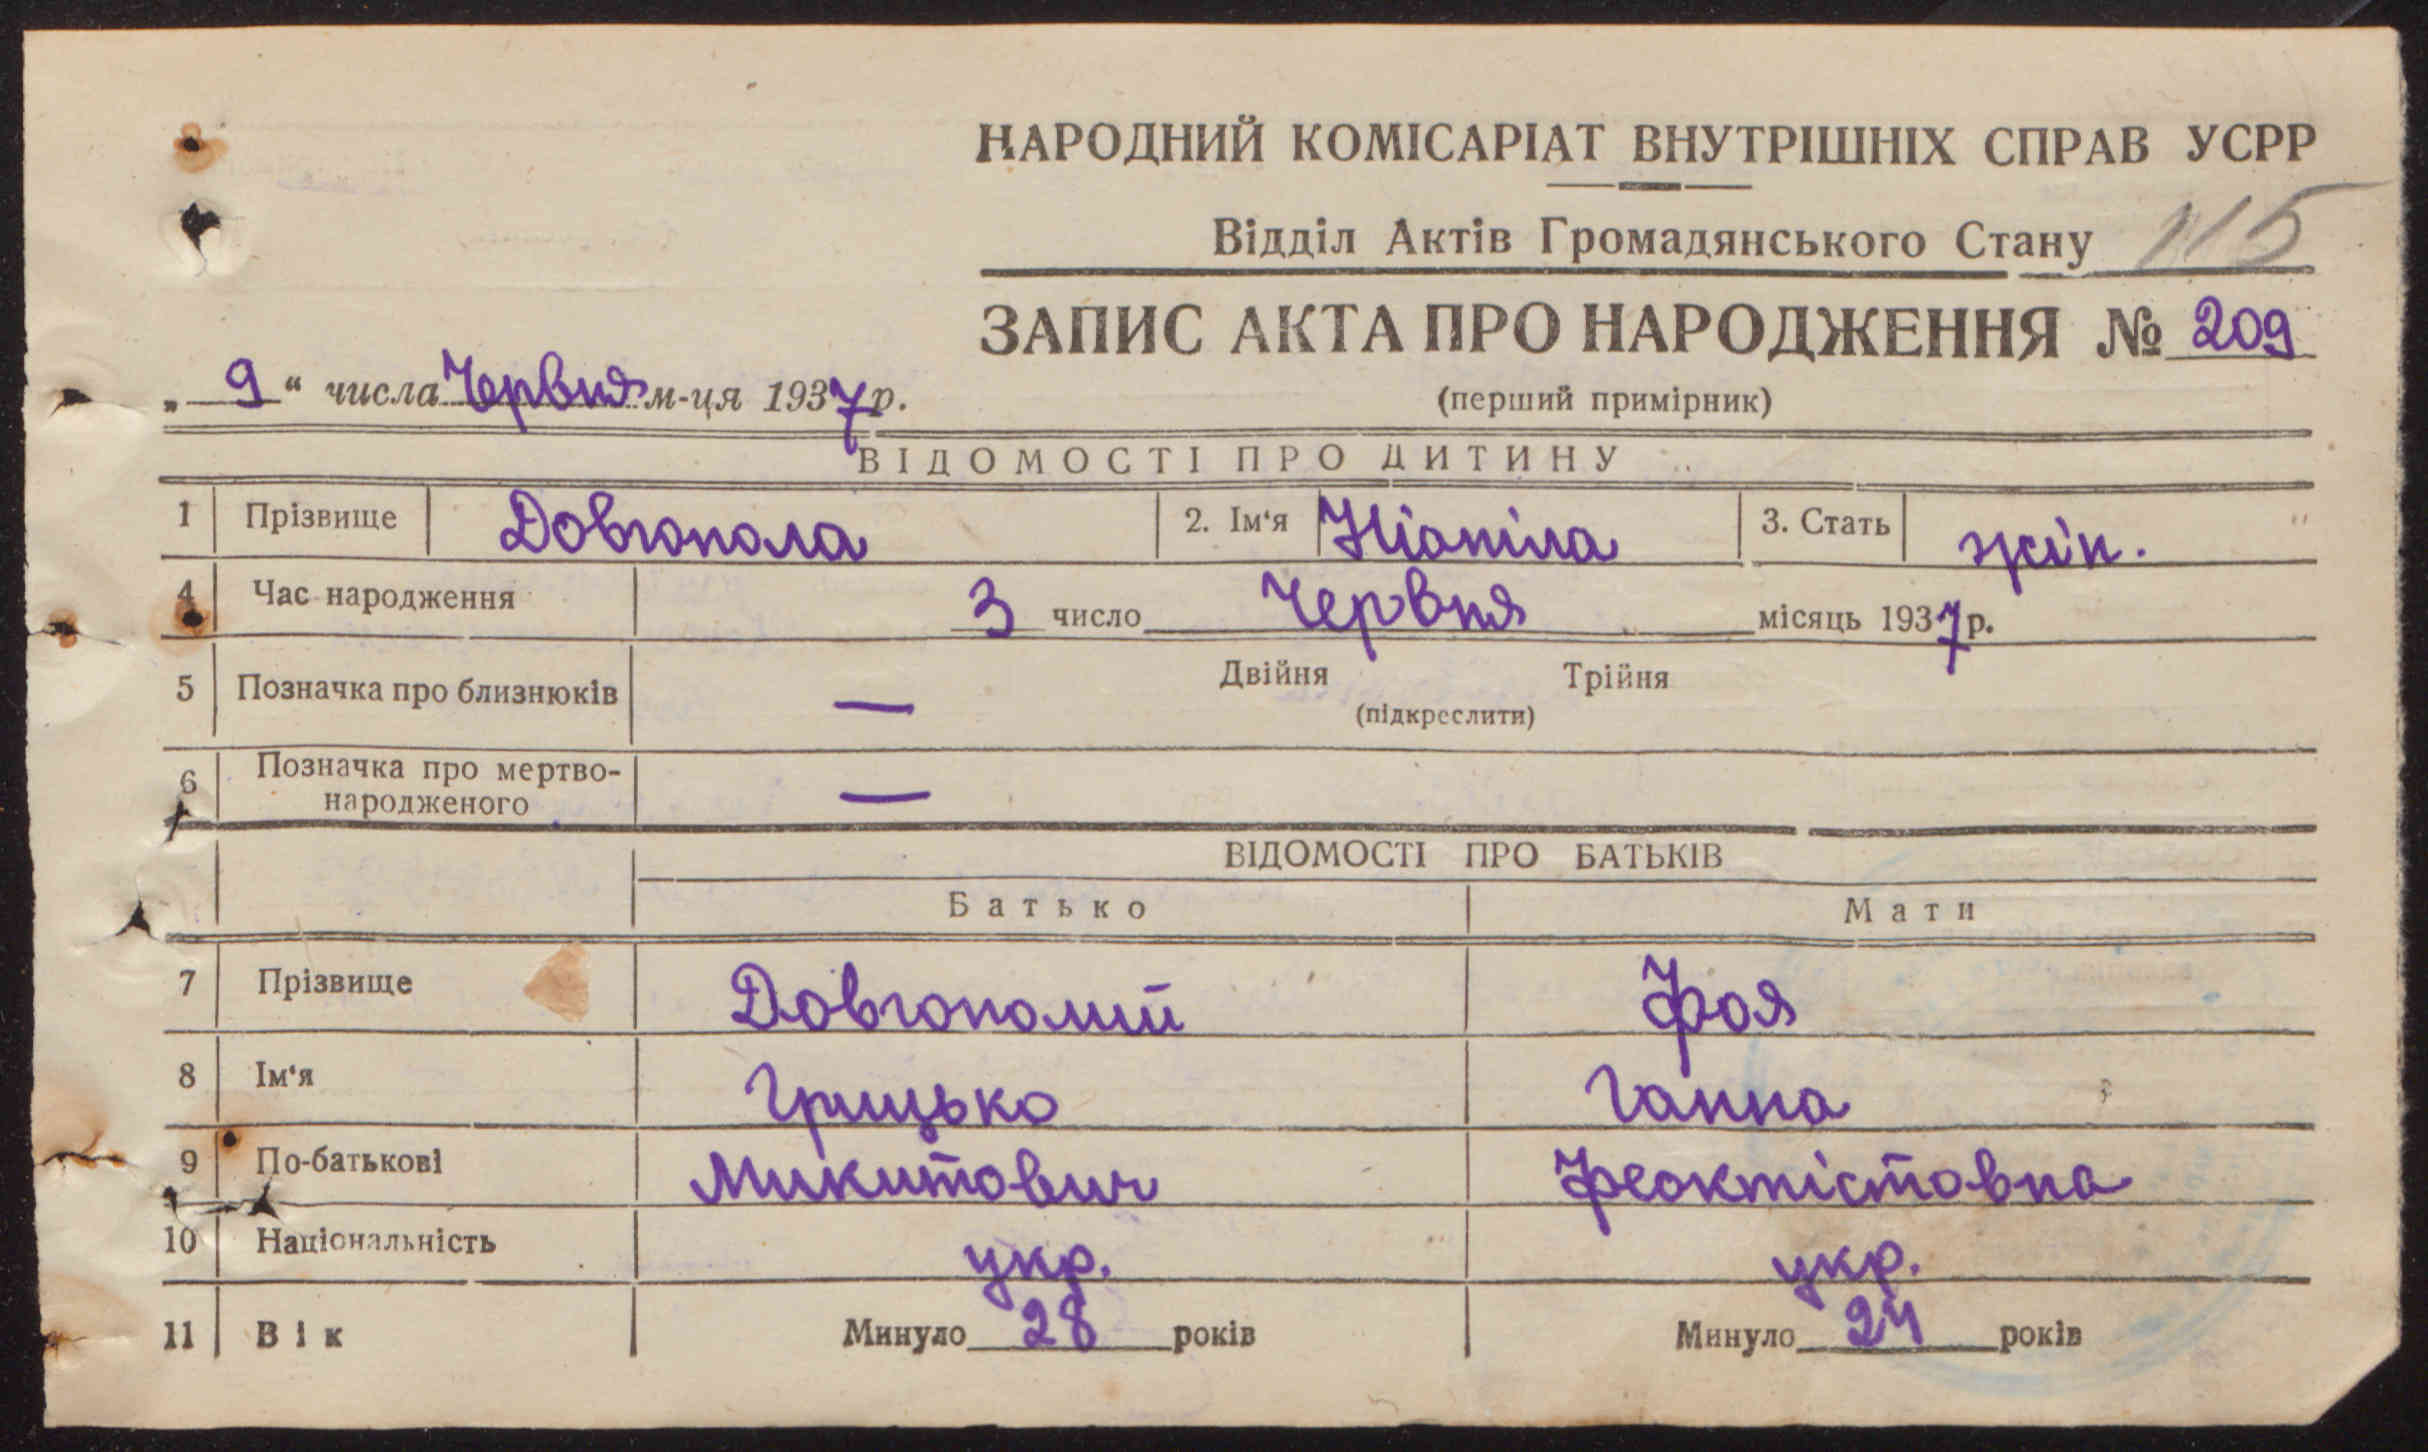 НАРОДНИЙ КОМІСАРІАТ ВНУТРІШНІХ СПРАВ УСРР
Відділ Актів Громадянського Стану 115
ЗАПИС АКТА ПРО НАРОДЖЕННЯ № 209
„ 9 “ числа Червня м-ця 1937 р.
(перший примірник)
ВІДОМОСТІ ПРО ДИТИНУ
1 Прізвище Довгопола 2. Ім‘я Ніоніла 3. Стать жін.
4 Час народження 3 число Червня місяць 1937 р.
5 Позначка про близнюків — Двійня Трійня
(підкреслити)
6 Позначка про мертво-
народженого —
ВІДОМОСТІ ПРО БАТЬКІВ
Батько Мати
7 Прізвище Довгополий Фоя
8 Ім‘я Грицько Ганна
9 По-батькові Микитович Феоктістовна
10 Національність укр. укр.
11 Вік Минуло 28 років Минуло 24 років